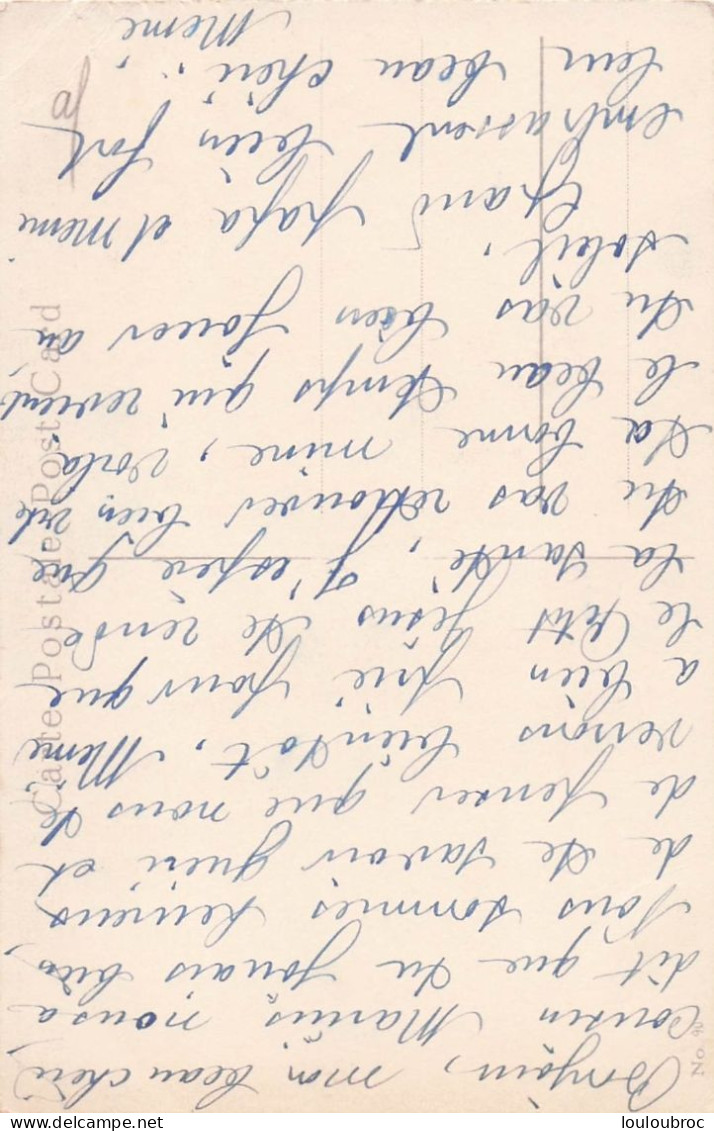 Bonjour, mon beau chéri
cousin Marius nous a
dit que tu jouais bien,
Nous sommes heureux
de te savoir guéri et
de penser que nous te
verrons bientôt, Mémé
a bien prié, pour que
le Petit Jésus te rende
la santé, J'espère que
tu vas retrouver bien vite
ta bonne mine, voilà
le beau temps qui revient
tu vas bien jouer au
soleil,
Grand Papa et Mémé
embrassent bien fort
leur beau chéri,
Mémé
Carte Postale Post Card
No.
louloubroc